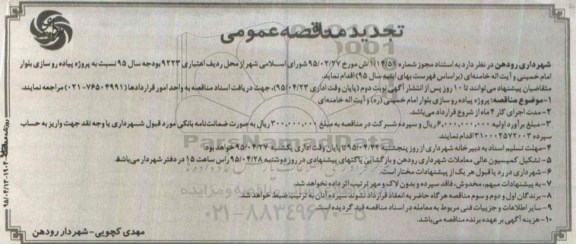 تجدید مناقصه عمومی
شهرداری رودهن در نظر دارد به استناد مجوز شماره ۱۱۴/۵۱/ش مورخ ۹۵/۰۲/۲۷ شورای اسلامی شهر از محل ردیف اعتباری ۹۲۲۳ بودجه سال ۹۵ نسبت به پروژه پیاده رو سازی بلوار
امام خمینی و آیت اله خامنه‌ای (براساس فهرست بهای ابنیه سال ۹۵) اقدام نماید.
متقاضیان پیشنهاد می‌توانند تا ۱۰ روز پس از انتشار آگهی نوبت دوم (پایان وقت اداری ۹۵/۰۴/۲۳)، جهت دریافت اسناد مناقصه به واحد امور قراردادها (۷۶۵۰۴۹۹۱-۰۲۱) مراجعه نمایند.
۱-موضوع مناقصه: پروژه پیاده رو سازی بلوار امام خمینی (ره) و آیت اله خامنه‌ای
۲- مدت اجرای کار ۴ ماه از شروع قرارداد می‌باشد.
۳-مبلغ برآورد اولیه ۴,۰۰۰,۰۰۰,۰۰۰ ریال و سپرده شرکت در مناقصه به مبلغ ۳۰۰,۰۰۰,۰۰۰ ریال به صورت ضمانت‌نامه بانکی مورد قبول شهرداری یا وجه نقد جهت واریز به حساب
سپرده ۳۱۰۰۰۲۵۷۲۰۰۳ اقدام نمایند.
۴-مهلت تسلیم اسناد به دبیرخانه شهرداری از روز پنجشنبه ۹۵/۰۴/۲۴ تا پایان وقت اداری یکشنبه ۹۵/۰۴/۲۷ خواهد بود.
۵- تشکیل کمیسیون عالی معاملات شهرداری رودهن و بازگشایی پاکتهای پیشنهادی در روز دوشنبه ۹۵/۰۴/۲۸ راس ساعت ۱۵ در دفتر شهردار می‌باشد.
۶- شهرداری در رد یا قبول هر یک از پیشنهادات مختار است.
۷- به پیشنهادات مبهم، مخدوش، فاقد سپرده و بدون لاک و مهر ترتیب اثر داده نخواهد شد.
۸- برندگان اول و دوم و سوم مناقصه هرگاه حاضر به انعقاد قرارداد نشوند سپرده آنان به ترتیب ضبط خواهد شد.
۹- سایر اطلاعات و جزییات فنی مربوط به معامله در اسناد مناقصه قید گردیده است.
۱۰- هزینه آگهی بر عهده برنده مناقصه می‌باشد.
مهدی کچویی- شهردار رودهن
ParsNamadData
۰۲۱-۸۸۳۴۹۶۷۰